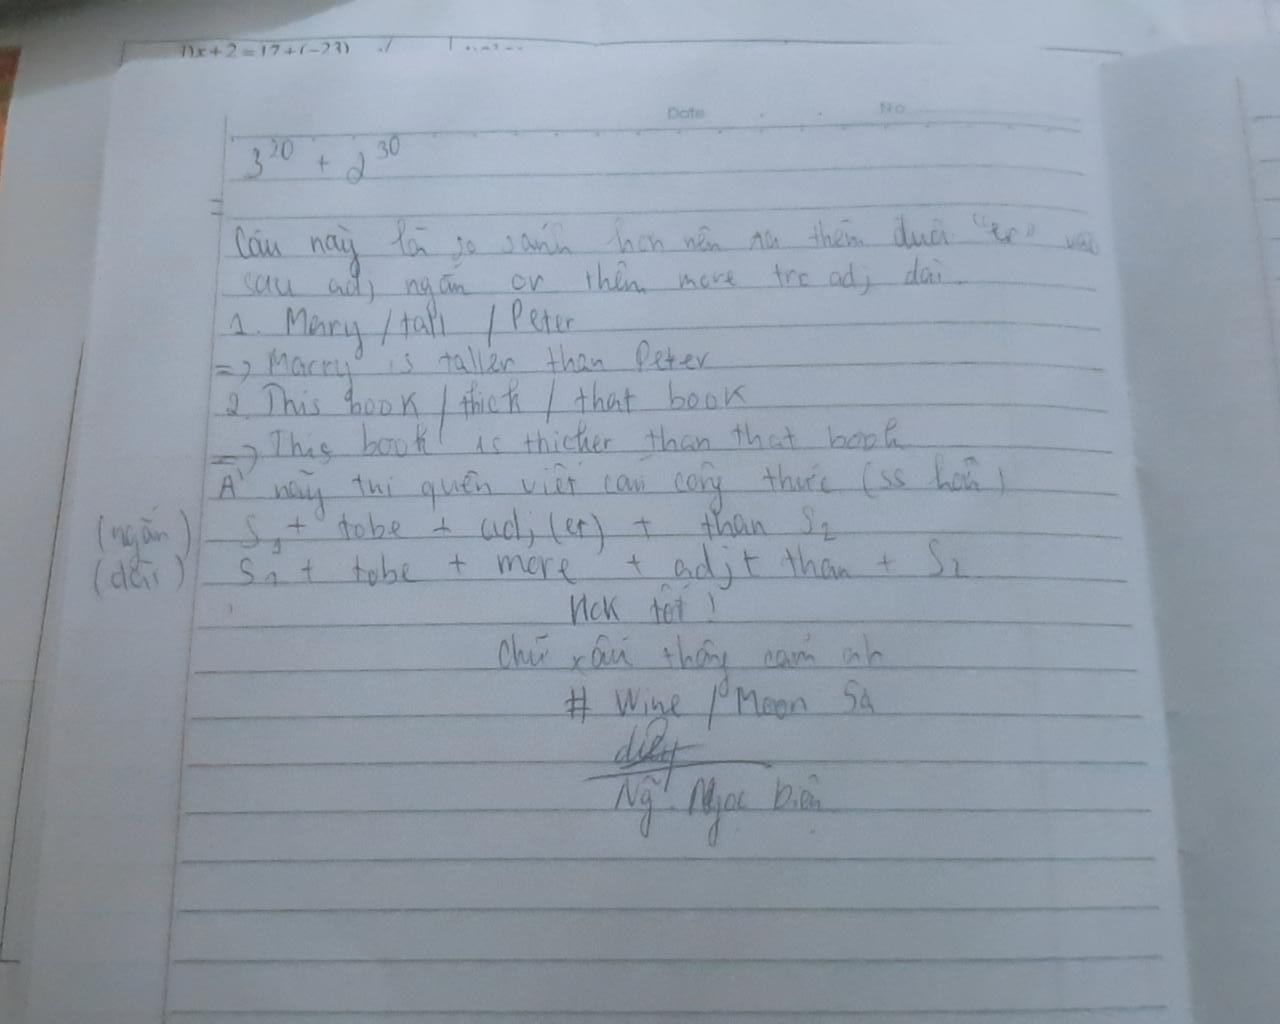 11x+2=17+(-23)
Date No
3^20 + 2^30
=
Câu này là so sánh hơn nên ta thêm đuôi "er" vào
sau adj ngắn or thêm more trc adj dài
1. Mary / tall / Peter
=> Marry is taller than Peter
2. This book / thick / that book
=> This book is thicker than that book
À nãy tui quên viết cái công thức (ss hơn)
(ngắn) S1 + tobe + adj (er) + than S2
(dài) S1 + tobe + more + adj + than + S2
Hck tốt!
Chữ xấu thông cảm ah
# Wine / Moon Sg
Ng~ Ngọc